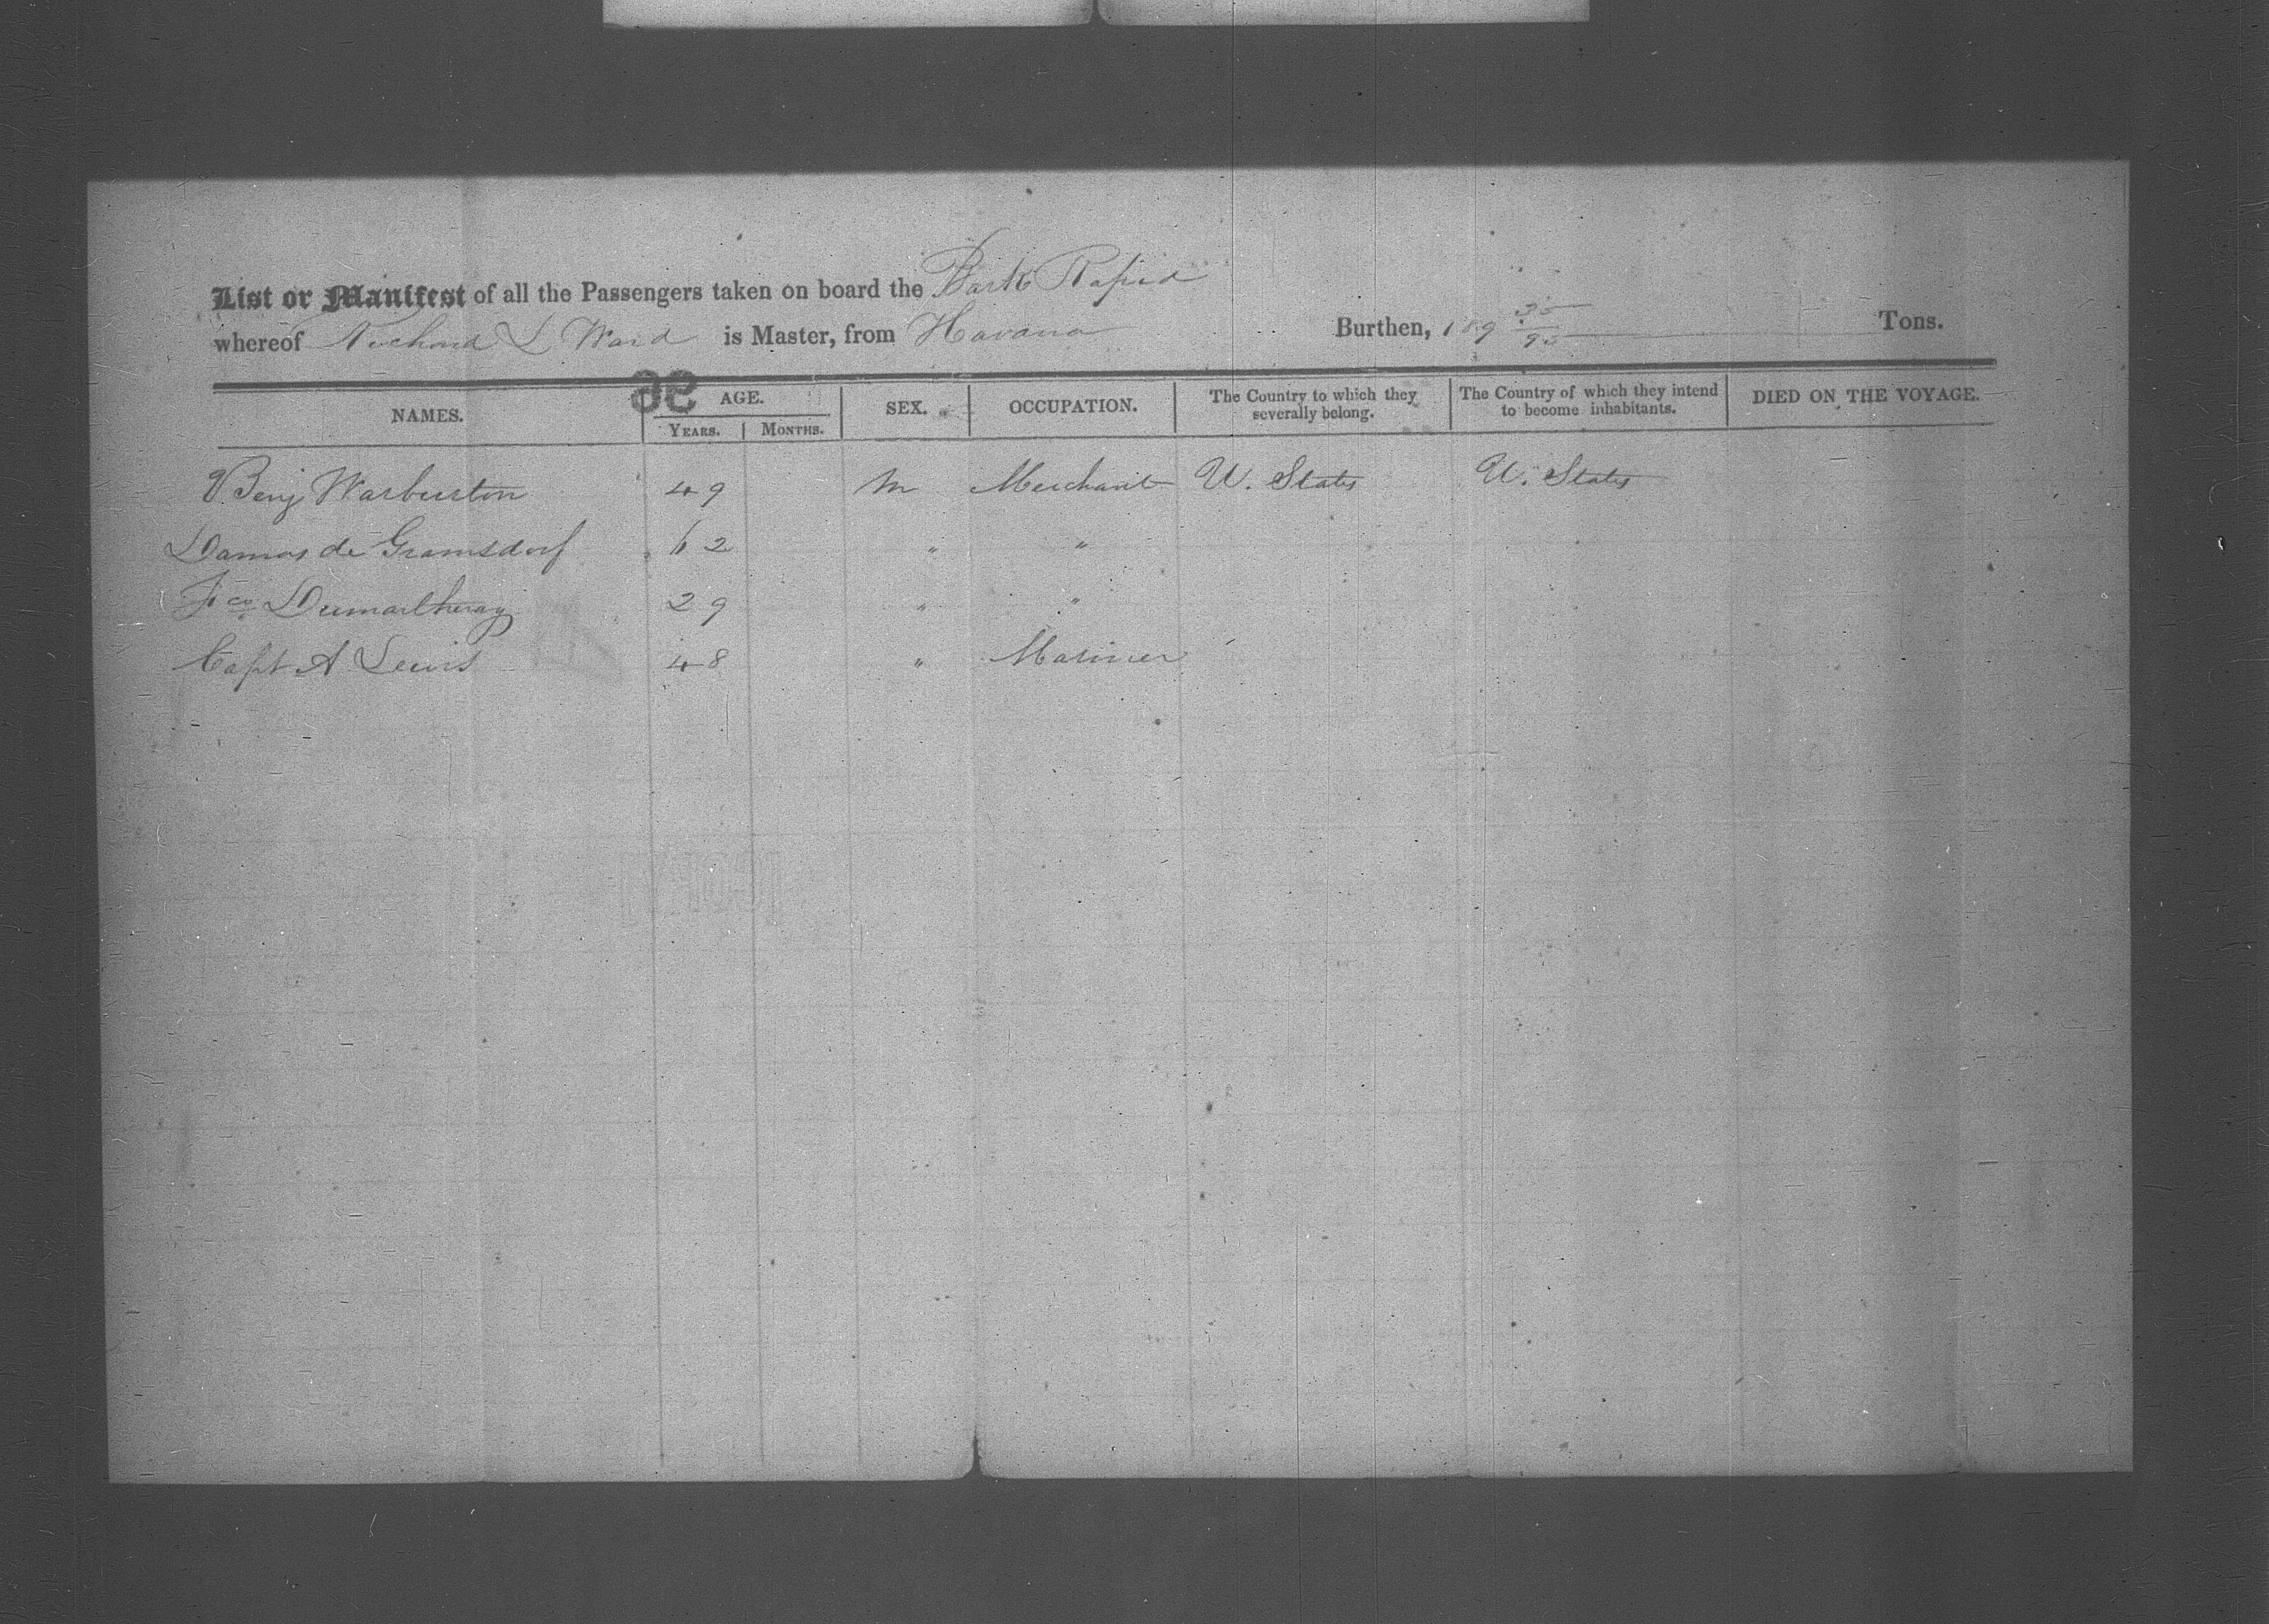 List or Manifest of all the Passengers taken on board the Bark Rapid
whereof Richard L Ward is Master, from Havana Burthen, 189 35/95 Tons.
NAMES. AGE. SEX. OCCUPATION. The Country to which they severally belong. The Country of which they intend to become inhabitants. DIED ON THE VOYAGE.
YEARS. MONTHS.
Benj Warburton 49 M Merchant U. States U. States
Damas de Gramsdorf 62 " "
Fco Dumartheray 29 " "
Capt A Lewis 48 " Mariner